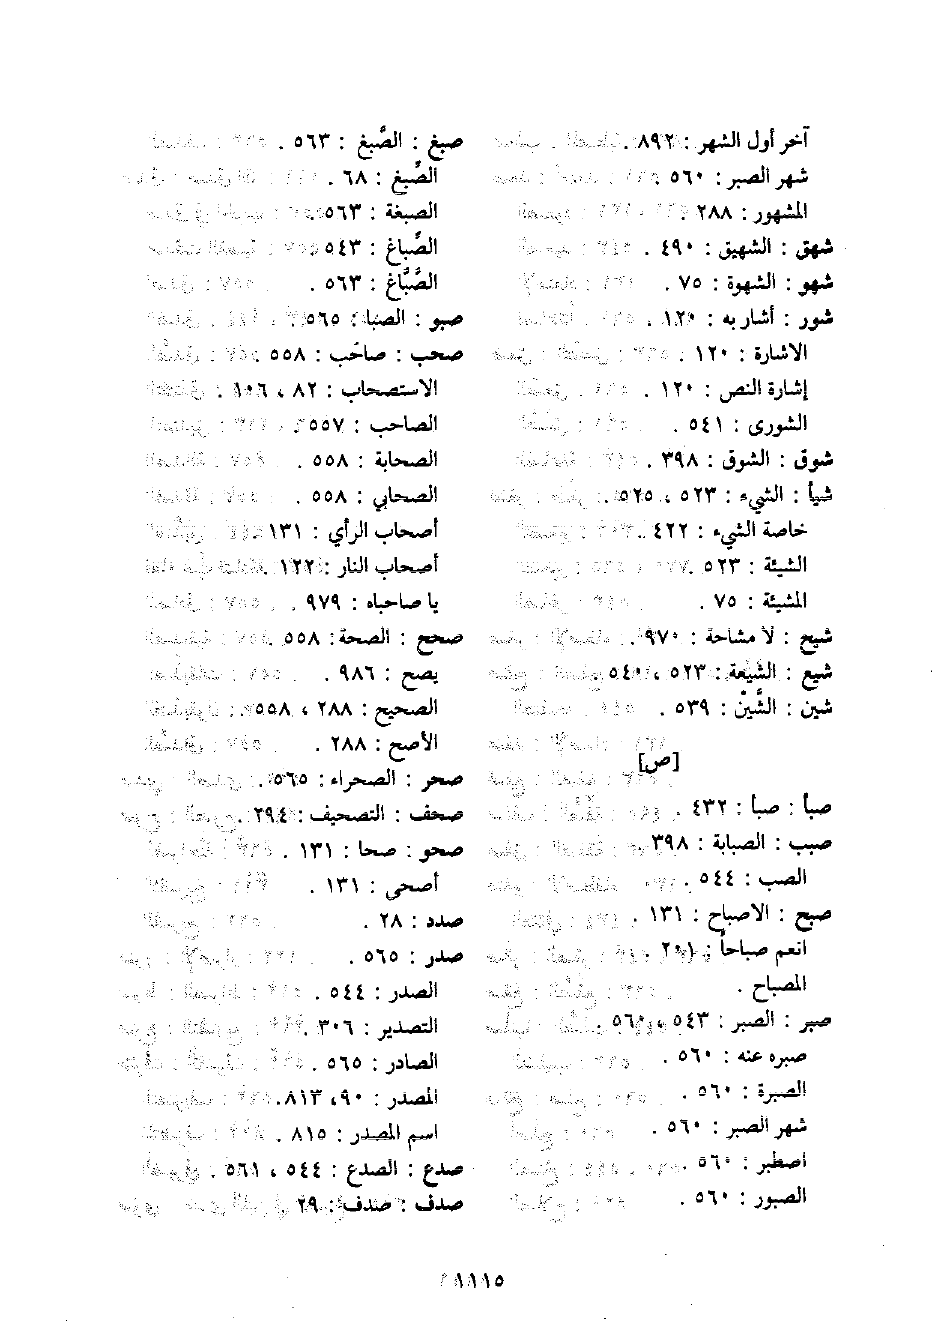 آخر أول الشهر : ٨٩٢ .
شهر الصبر : ٥٦٠ .
المشهور : ٢٨٨
شهق : الشهيق : ٤٩٠ .
شهو : الشهوة : ٧٥ .
شور : أشار به : ١٢٠ .
الاشارة : ١٢٠ .
إشارة النص : ١٢٠ .
الشورى : ٥٤١ .
شوق : الشوق : ٣٩٨ .
شيأ : الشيء : ٥٢٣ ، ٥٢٥ .
خاصة الشيء : ٤٢٢ .
الشيئة : ٥٢٣ .
المشيئة : ٧٥ .
شيح : لا مشاحة : ٩٧٠ .
شيع : الشيعة : ٥٢٣ ، ٥٤٠
شين : الشَّيْن : ٥٣٩ .
[ص]
صبأ : صبأ : ٤٣٢ .
صبب : الصبابة : ٣٩٨
الصب : ٥٤٤ .
صبح : الاصباح : ١٣١ .
انعم صباحاً : ٢٠١
المصباح .
صبر : الصبر : ٥٤٣ ، ٥٦٠
صبره عنه : ٥٦٠ .
الصبرة : ٥٦٠ .
شهر الصبر : ٥٦٠ .
اصطبر : ٥٦٠
الصبور : ٥٦٠ .
صبغ : الصَّبغ : ٥٦٣ .
الصِّبغ : ٦٨ .
الصبغة : ٥٦٣
الصِّباغ : ٥٤٣
الصَّبَّاغ : ٥٦٣ .
صبو : الصبا : ٥٦٥
صحب : صاحَب : ٥٥٨
الاستصحاب : ٨٢ ، ١٠٦ .
الصاحب : ٥٥٧
الصحابة : ٥٥٨ .
الصحابي : ٥٥٨ .
أصحاب الرأي : ١٣١
أصحاب النار : ١٢٢
يا صاحباه : ٩٧٩ .
صحح : الصحة : ٥٥٨
يصح : ٩٨٦ .
الصحيح : ٢٨٨ ، ٥٥٨
الأصح : ٢٨٨ .
صحر : الصحراء : ٥٦٥ .
صحف : التصحيف : ٢٩٤
صحو : صحا : ١٣١ .
أصحى : ١٣١ .
صدد : ٢٨ .
صدر : ٥٦٥ .
الصدر : ٥٤٤ .
التصدير : ٣٠٦ .
الصادر : ٥٦٥ .
المصدر : ٩٠ ، ٨١٣ .
اسم المصدر : ٨١٥ .
صدع : الصدع : ٥٤٤ ، ٥٦١ .
صدف : صدف : ٢٩
١١١٥